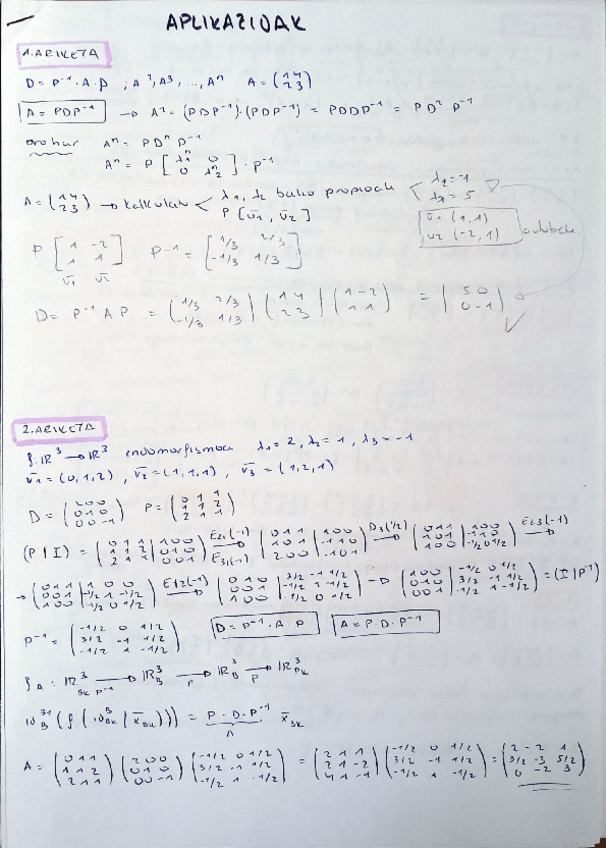 APLIKAZIOAK
1. ARIKETA
D = P⁻¹ · A · P , A², A³, ..., Aⁿ A = (1 4 / 2 3)
A = PDP⁻¹ → A² = (PDP⁻¹)·(PDP⁻¹) = PDDP⁻¹ = PD² P⁻¹
Orohar Aⁿ = PDⁿ P⁻¹
Aⁿ = P [λ₁ⁿ 0 / 0 λ₂ⁿ] · P⁻¹
A = (1 4 / 2 3) → kalkulatu < λ₁, λ₂ balio propioak < λ₂ = -1 λ₁ = 5
P [v̄₁, v̄₂] v̄₁ (1, 1) v̄₂ (-2, 1)
P [1 -2 / 1 1] P⁻¹ = [1/3 2/3 / -1/3 1/3]
v̄₁ v̄₂
D = P⁻¹ A P = (1/3 2/3 / -1/3 1/3) (1 4 / 2 3) (1 -2 / 1 1) = (5 0 / 0 -1)
2. ARIKETA
f: ℝ³ → ℝ³ endomorfismoa λ₁ = 2, λ₂ = 1, λ₃ = -1
v̄₁ = (0, 1, 2) , v̄₂ = (1, 1, 1) , v̄₃ = (1, 2, 1)
D = (2 0 0 / 0 1 0 / 0 0 -1) P = (0 1 1 / 1 1 2 / 2 1 1)
(P | I) = (0 1 1 | 1 0 0 / 1 1 2 | 0 1 0 / 2 1 1 | 0 0 1) E₂₁(-1) E₃₁(-1) → (0 1 1 | 1 0 0 / 1 0 1 | -1 1 0 / 2 0 0 | -1 0 1) D₃(1/2) → (0 1 1 | 1 0 0 / 1 0 1 | -1 1 0 / 1 0 0 | -1/2 0 1/2) E₂₃(-1) →
→ (0 1 1 | 1 0 0 / 0 0 1 | -1/2 1 -1/2 / 1 0 0 | -1/2 0 1/2) E₁₂(-1) → (0 1 0 | 3/2 -1 1/2 / 0 0 1 | -1/2 1 -1/2 / 1 0 0 | -1/2 0 1/2) → (1 0 0 | -1/2 0 1/2 / 0 1 0 | 3/2 -1 1/2 / 0 0 1 | -1/2 1 -1/2) = (I | P⁻¹)
P⁻¹ = (-1/2 0 1/2 / 3/2 -1 1/2 / -1/2 1 -1/2) D = P⁻¹ · A · P A = P · D · P⁻¹
f_A : ℝ³_BK P⁻¹ → ℝ³_B F → ℝ³_B P → ℝ³_BK
(x̄_BK))) = P · D · P⁻¹ x̄_BK
A
A = (0 1 1 / 1 1 2 / 2 1 1) (2 0 0 / 0 1 0 / 0 0 -1) (-1/2 0 1/2 / 3/2 -1 1/2 / -1/2 1 -1/2) = (2 1 1 / 2 1 -2 / 4 1 -1) (-1/2 0 1/2 / 3/2 -1 1/2 / -1/2 1 -1/2) = (2 -2 1 / 3/2 -3 5/2 / 0 -2 3)